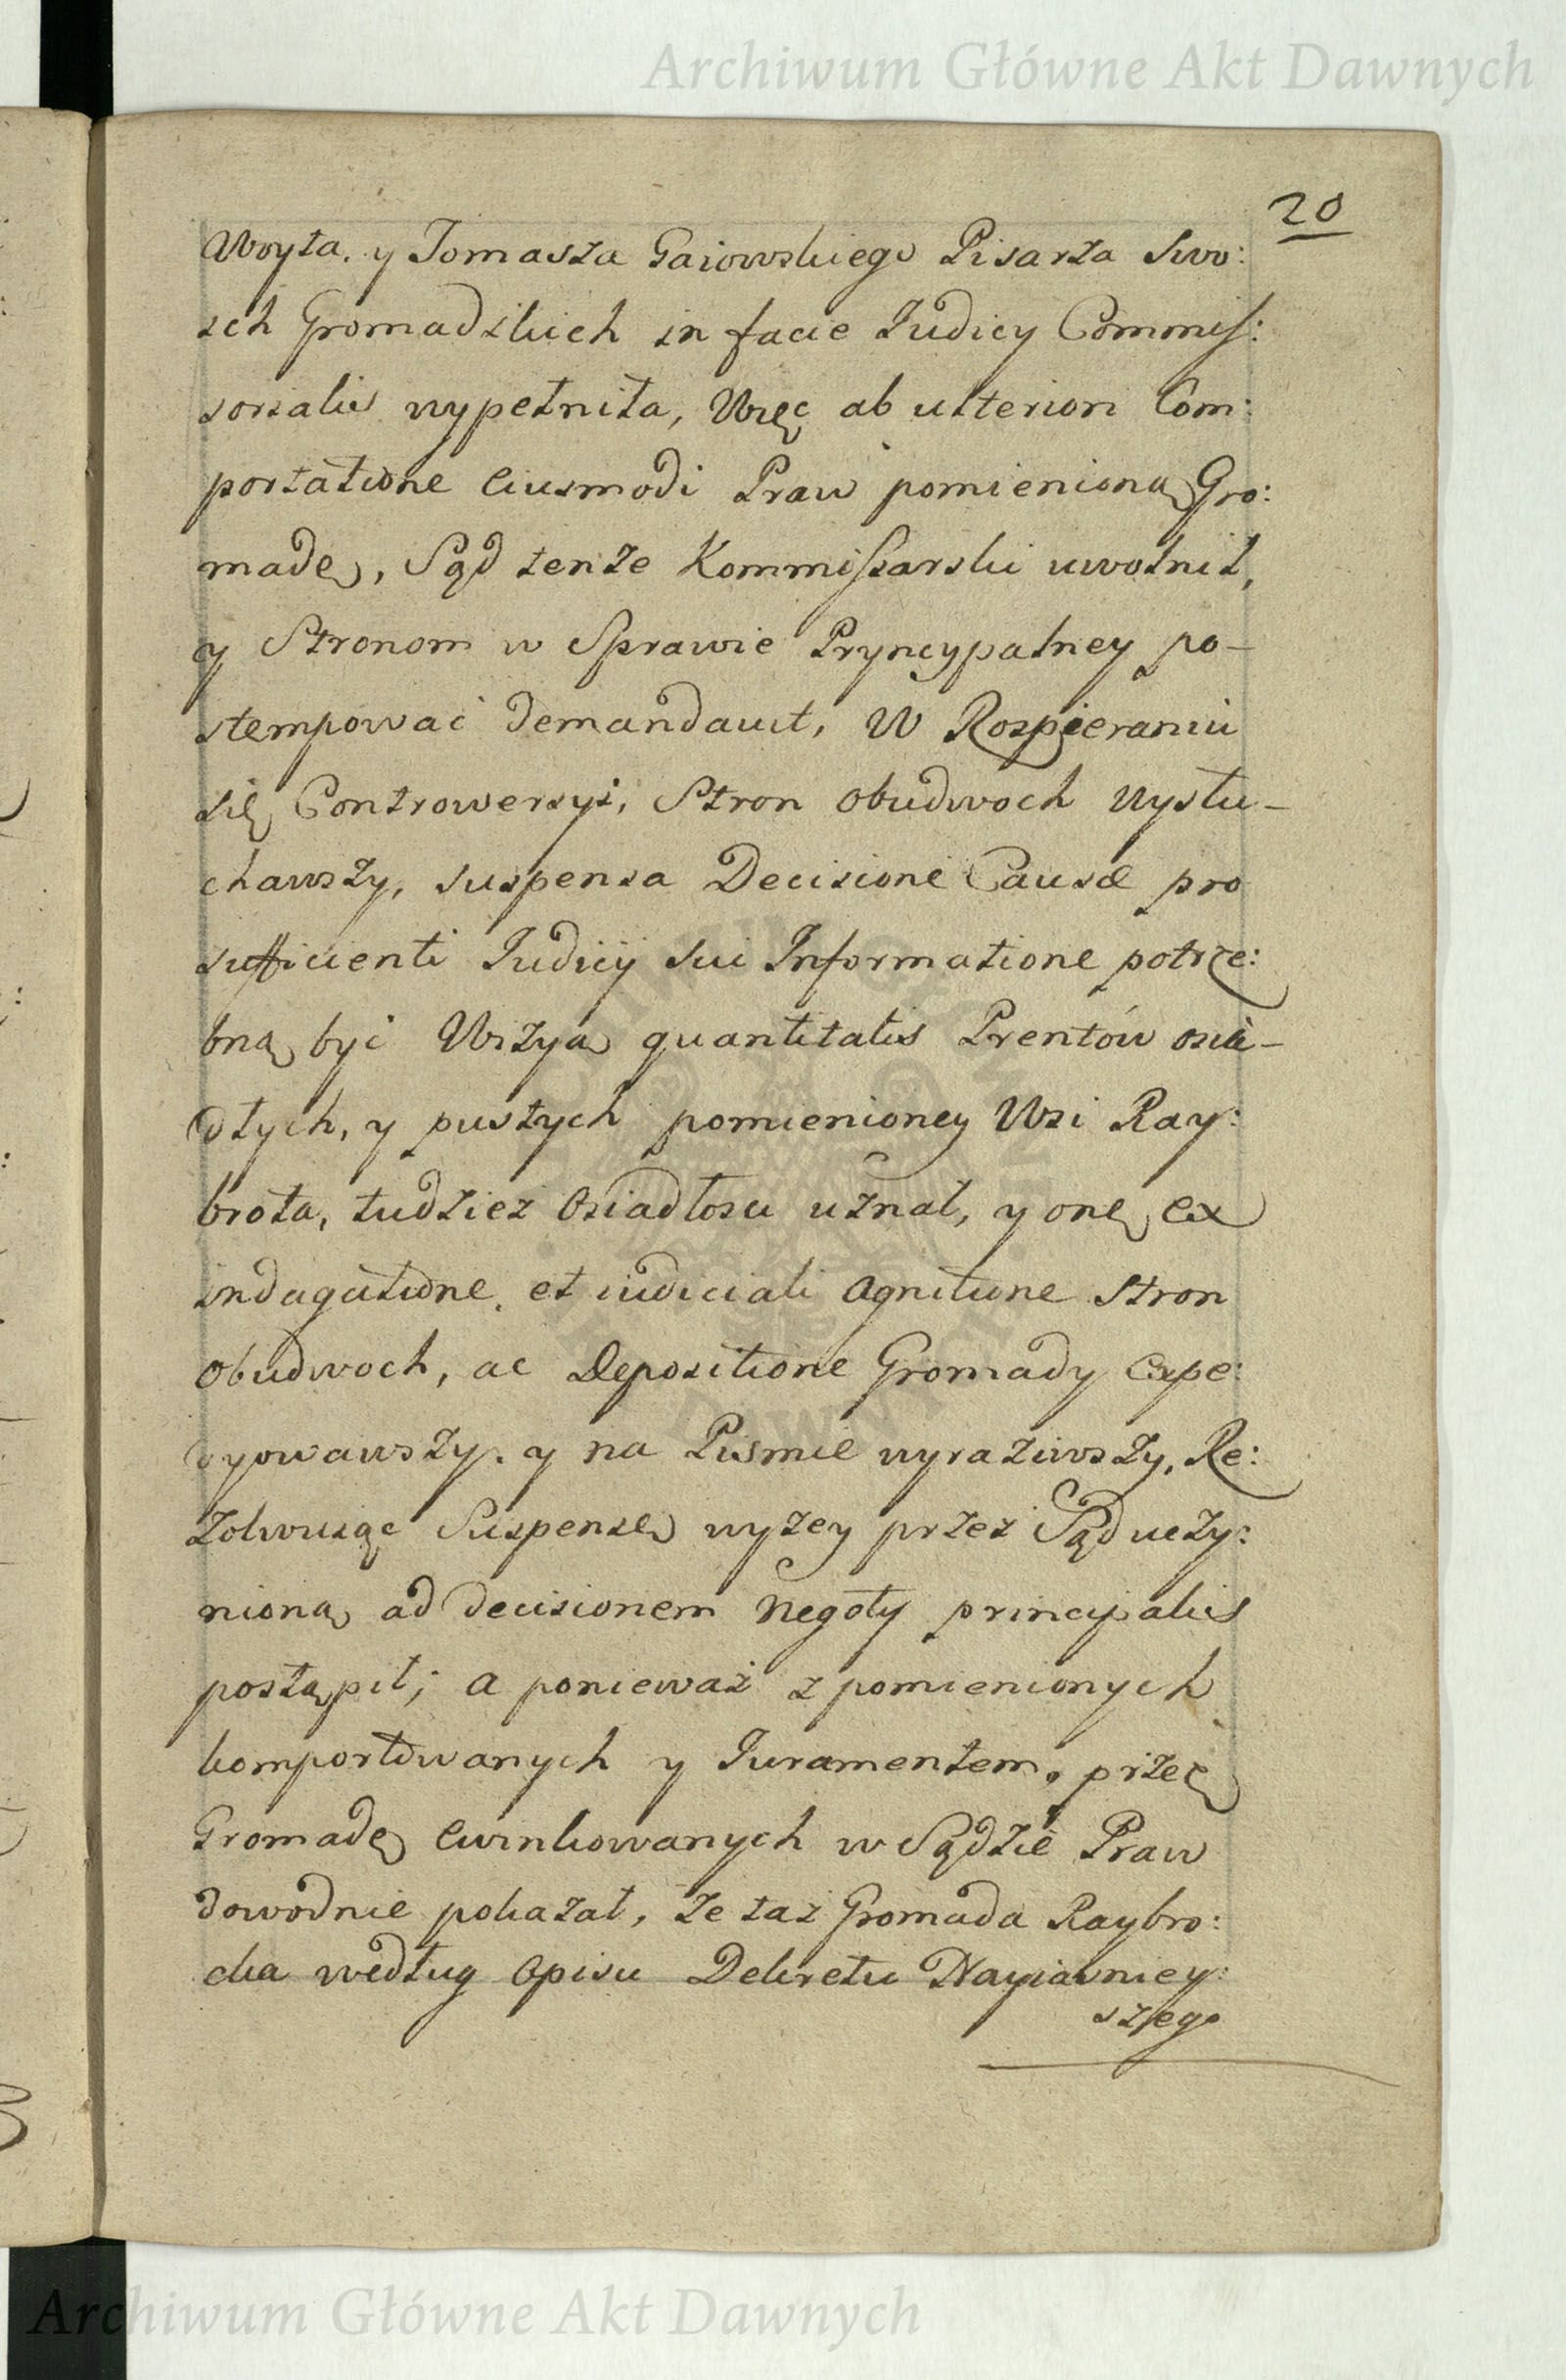 Archiwum Główne Akt Dawnych
20
Woyta, y Tomasza Gaiowskiego Pisarza Swo:
ich Gromadzkich in facie Iudicy Commis:
sorialis wypełniła, Więc ab ulteriori Com:
portatione eiusmodi Praw pomienioną Gro:
madę, Sąd tenże Kommissarski uwolnił,
y Stronom w Sprawie Pryncypalney po-
stempować demandawit, W Rospieraniu
się Controwersyi, Stron obudwoch wysłu-
chawszy, suspensa Decisione Causæ pro
sufficienti Iudicij sui Informatione potrze:
bną być Wizyą quantitatis Prentów osia-
dłych, y pustych pomienioney Wsi Ray:
brota, tudziez Osiadłosci uznał, y onę ex
indagatione, et iudiciali agnitione Stron
obudwoch, ac Depositione Gromady expe:
dyowawszy, y na Pismie wyraziwszy, Re:
zolwuiąc Suspensę wyzey przez Sąd uczy:
nioną ad decisionem Negoty principalis
postąpił; a ponieważ z pomienionych
komportowanych y Iuramentem, przez
Gromadę ewinkowanych w Sądzie Praw
dowodnie pokazał, że taż Gromada Raybro:
cka według Opisu Dekretu Nayiasniey:
szego
Archiwum Główne Akt Dawnych